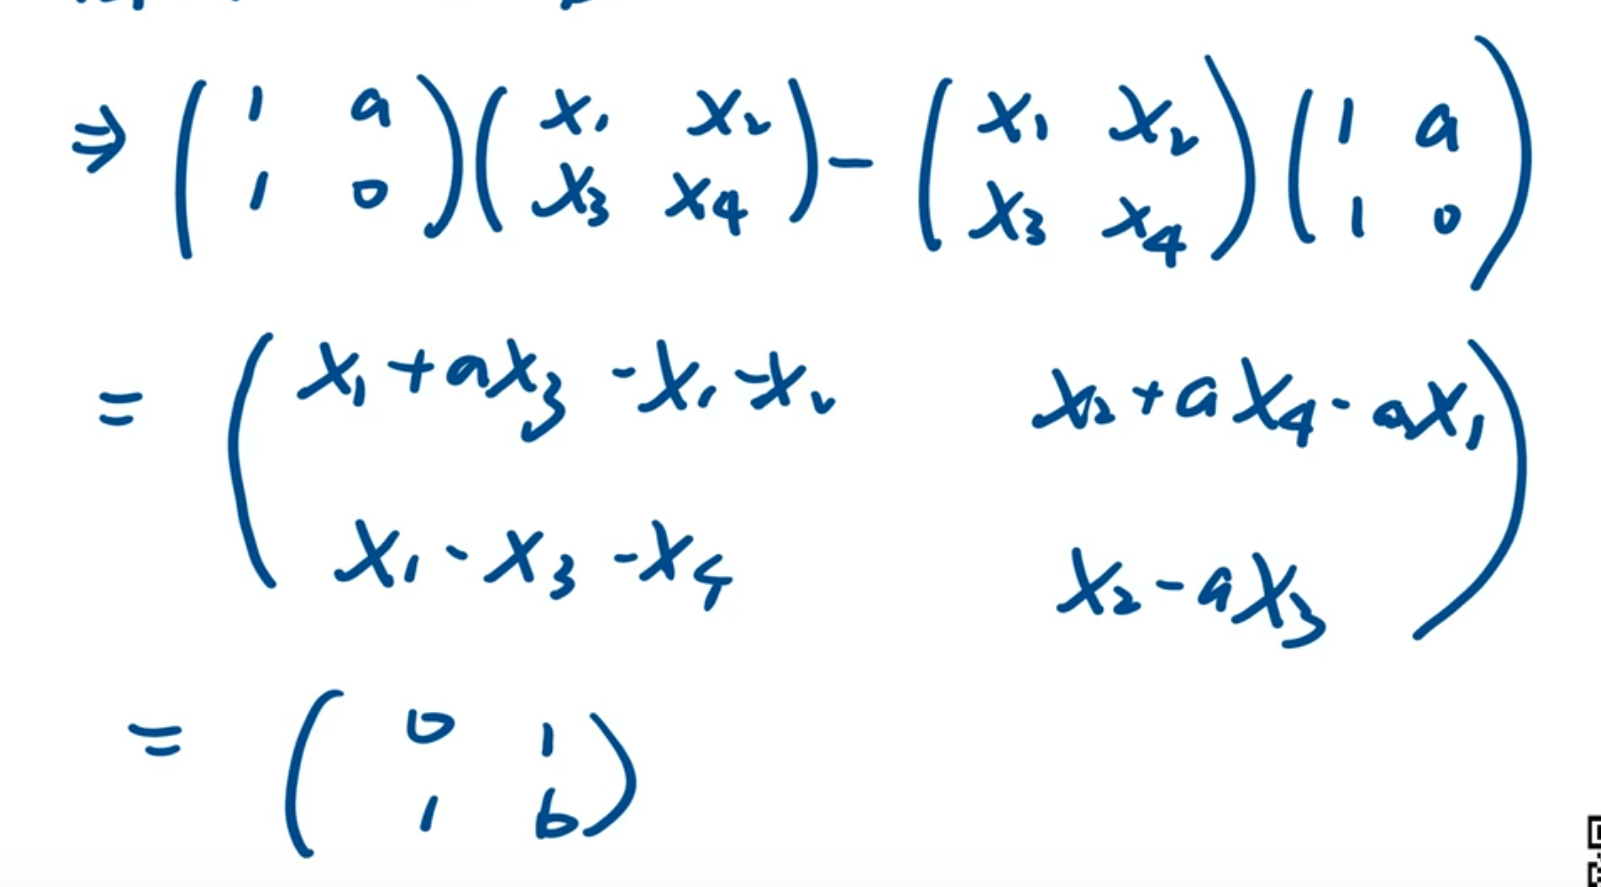 ⇒ (1 a; 1 0)(x₁ x₂; x₃ x₄) - (x₁ x₂; x₃ x₄)(1 a; 1 0)
= (x₁+ax₃-x₁-x₂  x₂+ax₄-ax₁; x₁-x₃-x₄  x₂-ax₃)
= (0 1; 1 b)